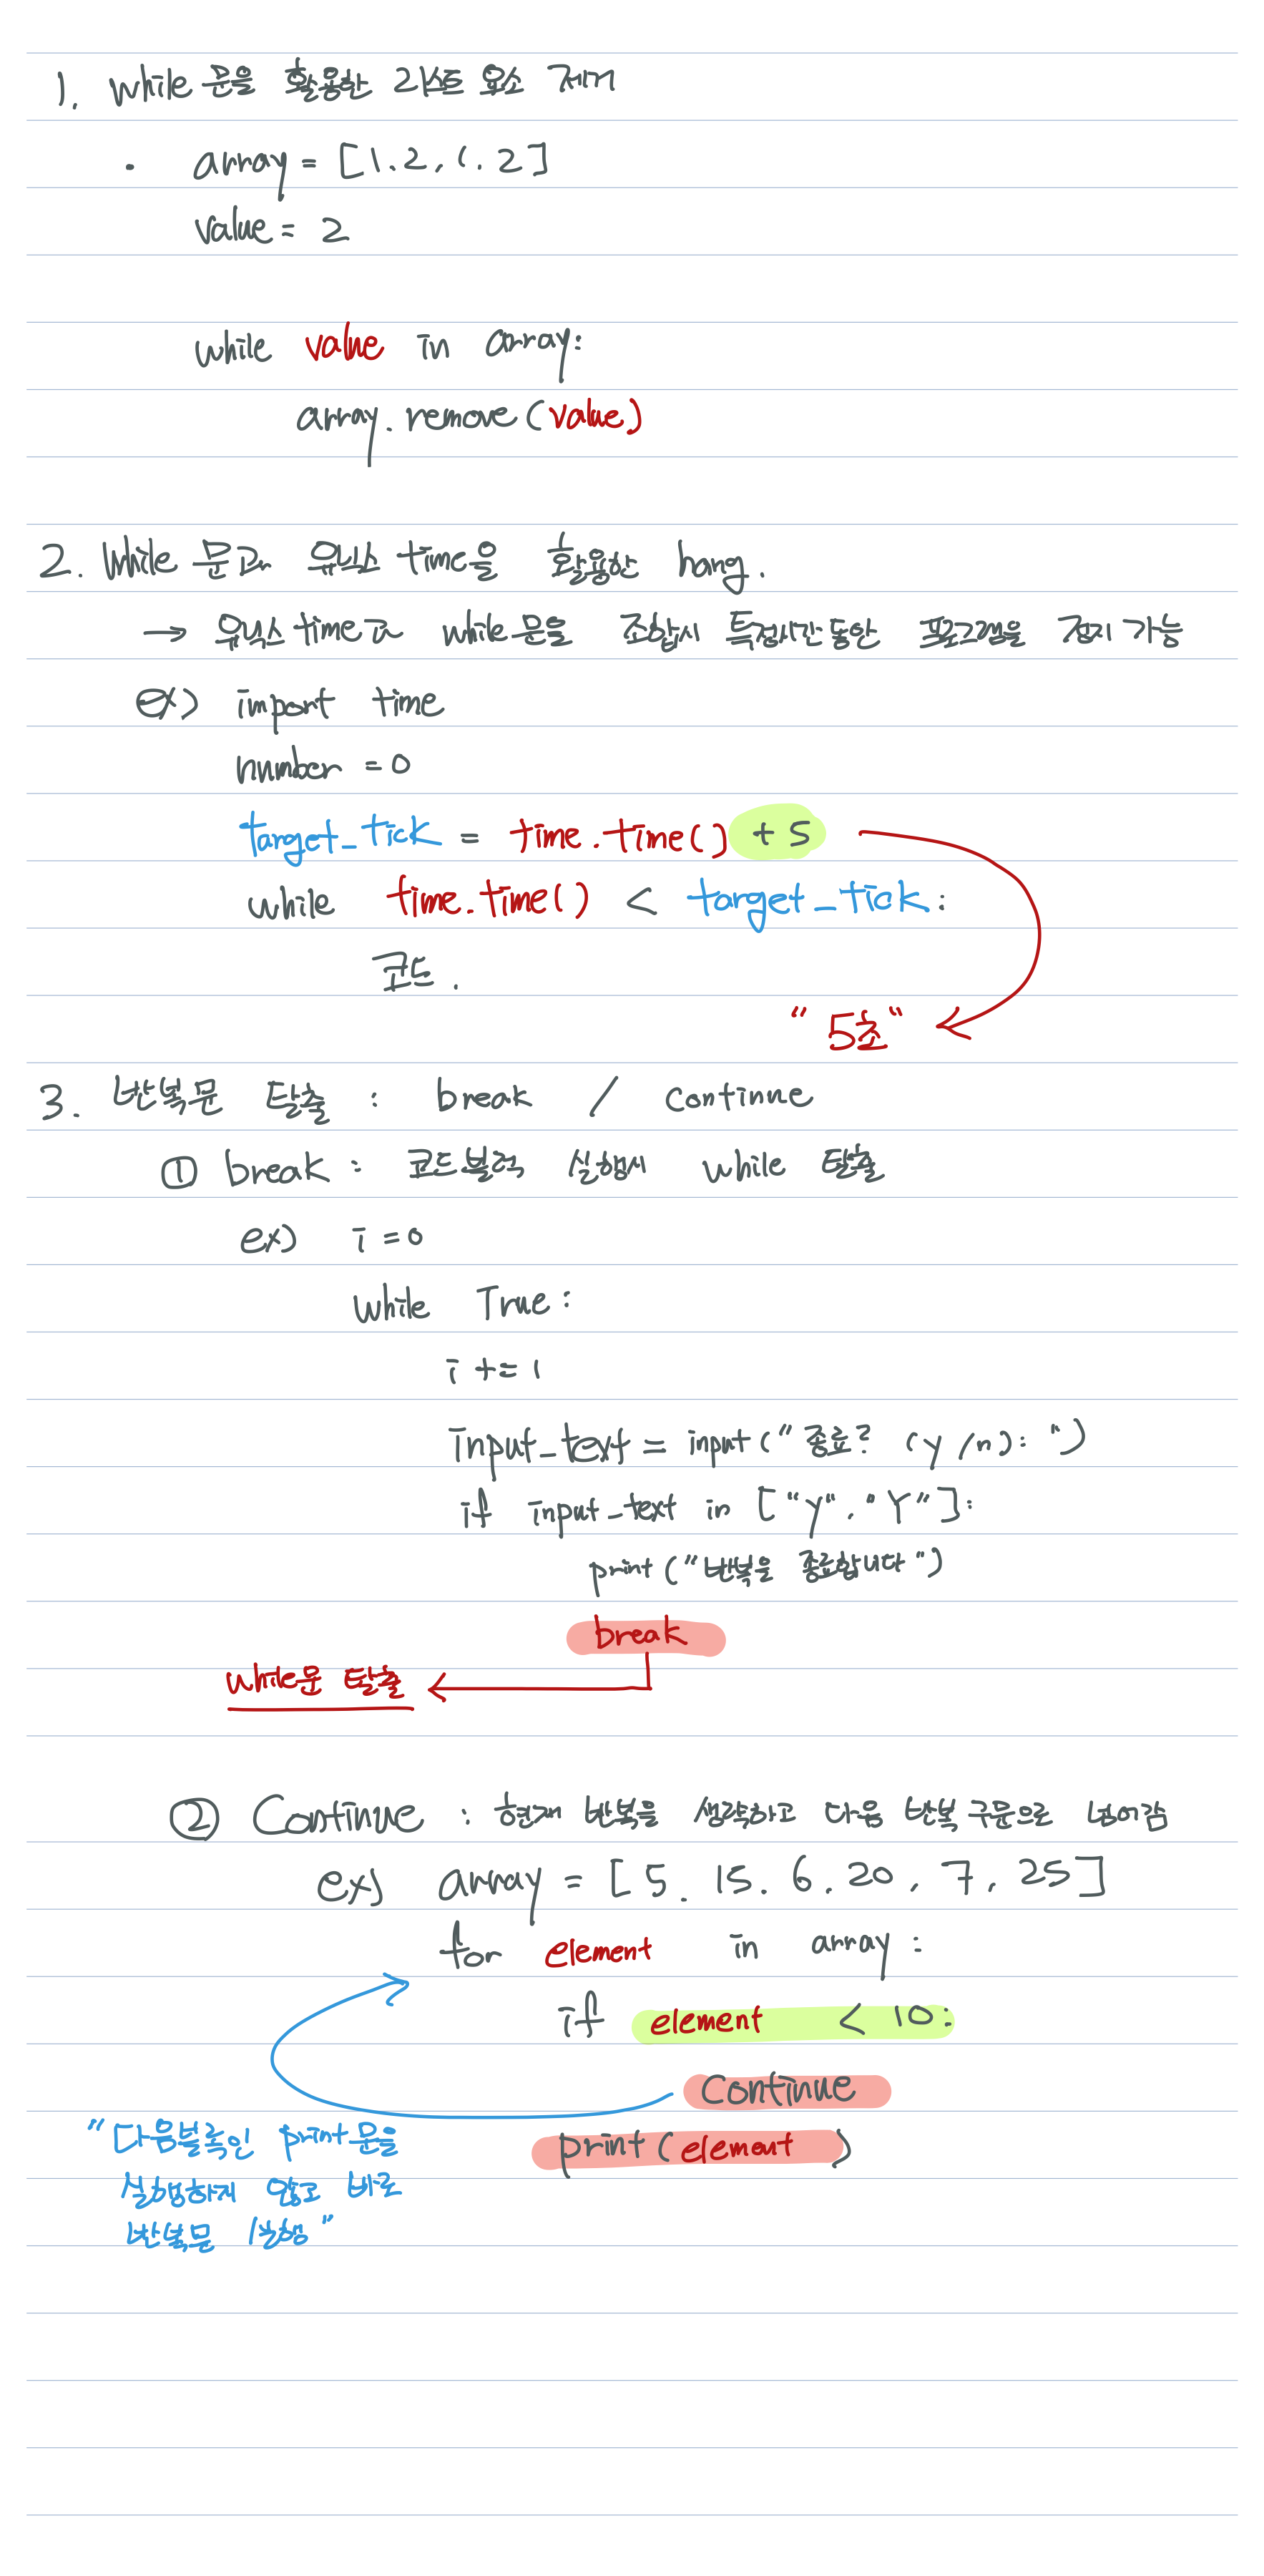 1. while 문을 활용한 리스트 요소 제거
· array = [1. 2, 1. 2]
value = 2
while value in array:
array. remove (value)
2. While 문과 유닉스 time을 활용한 hang.
→ 유닉스 time과 while 문을 조합시 특정시간 동안 프로그램을 정지 가능
ex) import time
number = 0
target_tick = time.time() + 5
while time.time() < target_tick:
코드.
"5초"
3. 반복문 탈출 : break / continue
① break : 코드블럭 실행시 while 탈출
ex) i = 0
while True:
i += 1
input_text = input ("종료? (y/n): ")
if input_text in ["y". "Y"]:
print ("반복을 종료합니다")
break
while문 탈출
② Continue : 현재 반복을 생략하고 다음 반복 구문으로 넘어감
ex) array = [5. 15. 6. 20, 7, 25]
for element in array :
if element < 10:
Continue
print (element)
"다음블록인 print 문을
실행하지 않고 바로
반복문 실행"